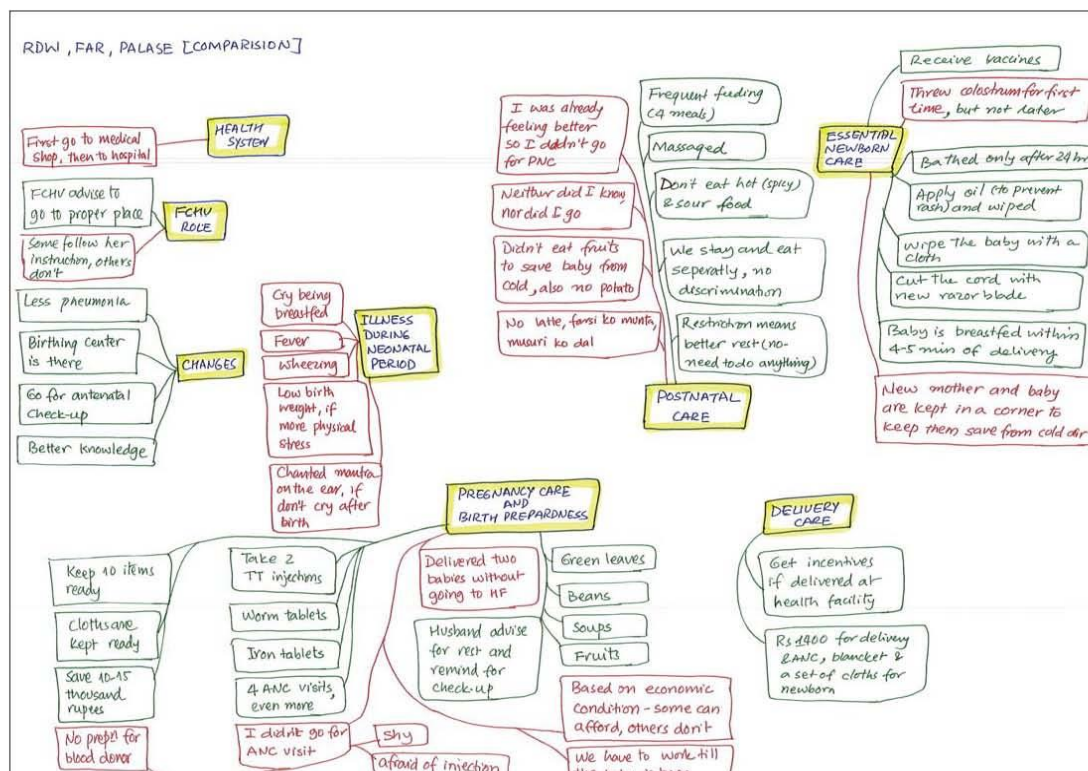 RDW, FAR, PALASE [COMPARISION]
HEALTH
SYSTEM
First go to medical
shop, then to hospital
FCHV
ROLE
FCHV advise to
go to proper place
Some follow her
instruction, others
don't
CHANGES
Less pneumonia
Birthing center
is there
Go for antenatal
check-up
Better knowledge
ILLNESS
DURING
NEONATAL
PERIOD
Cry being
breastfed
Fever
Wheezing
Low birth
weight, if
more physical
stress
Chanted mantra
on the ear, if
don't cry after
birth
POSTNATAL
CARE
I was already
feeling better
so I didn't go
for PNC
Neither did I know,
nor did I go
Didn't eat fruits
to save baby from
cold, also no potato
No latte, farsi ko munta,
musuri ko dal
Frequent feeding
(4 meals)
Massaged
Don't eat hot (spicy)
& sour food
We stay and eat
seperatly, no
discrimination
Restriction means
better rest (no-
need to do anything)
ESSENTIAL
NEWBORN
CARE
Receive vaccines
Threw colostrum for first
time, but not later
Bathed only after 24 hr
Apply oil (to prevent
rash) and wiped
Wipe the baby with a
cloth
Cut the cord with
new razor blade
Baby is breastfed within
4-5 min of delivery
New mother and baby
are kept in a corner to
keep them save from cold air
PREGNANCY CARE
AND
BIRTH PREPARDNESS
Keep 10 items
ready
Cloths are
kept ready
Save 10-15
thousand
rupees
No prepn for
blood donor
Take 2
TT injections
Worm tablets
Iron tablets
4 ANC visits,
even more
I didn't go for
ANC visit
Shy
afraid of injection
Delivered two
babies without
going to HF
Husband advise
for rest and
remind for
check-up
Green leaves
Beans
Soups
Fruits
Based on economic
condition - some can
afford, others don't
We have to work till
DELIVERY
CARE
Get incentives
if delivered at
health facility
Rs 1400 for delivery
& ANC, blancket &
a set of cloths for
newborn